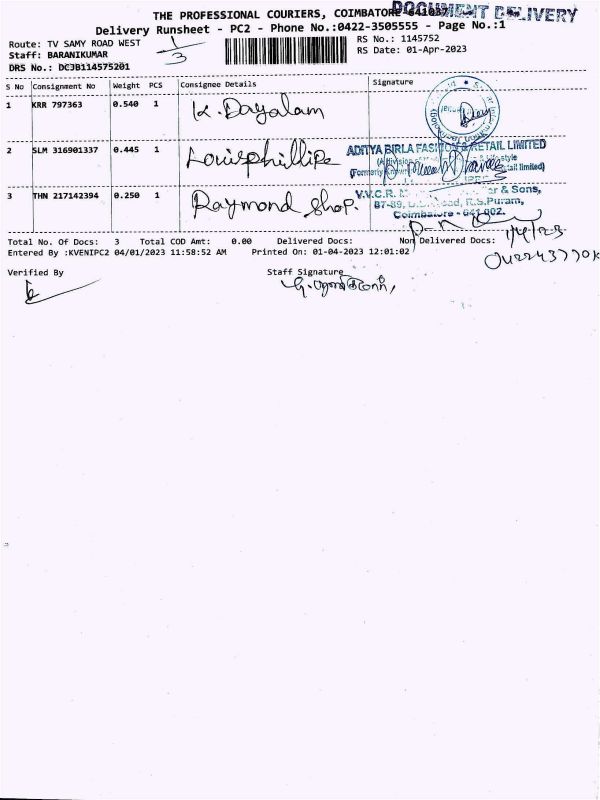 THE PROFESSIONAL COURIERS, COIMBATORE 641037
DOCUMENT DELIVERY
Delivery Runsheet - PC2 - Phone No.:0422-3505555 - Page No.:1
Route: TV SAMY ROAD WEST
1/3
RS No.: 1145752
Staff: BARANIKUMAR
RS Date: 01-Apr-2023
DRS No.: DCJB114575201
S No Consignment No Weight PCS Consignee Details Signature
1 KRR 797363 0.540 1 K. Dayalam
2 SLM 316901337 0.445 1 Louisphillipe
ADITYA BIRLA FASHION & RETAIL LIMITED
(A division style
(Formerly Known tail limited)
3 THN 217142394 0.250 1 Raymond Shop.
V.V.C.R. er & Sons,
87-89, Road, R.S.Puram,
Coimbatore - 641 002.
Total No. Of Docs: 3 Total COD Amt: 0.00 Delivered Docs: Non Delivered Docs: 1/4/23
Entered By :KVENIPC2 04/01/2023 11:58:52 AM Printed On: 01-04-2023 12:01:02
Verified By Staff Signature